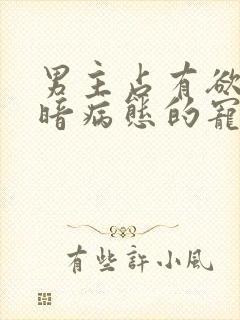 男主占有欲
暗病態的寵
有些許小風